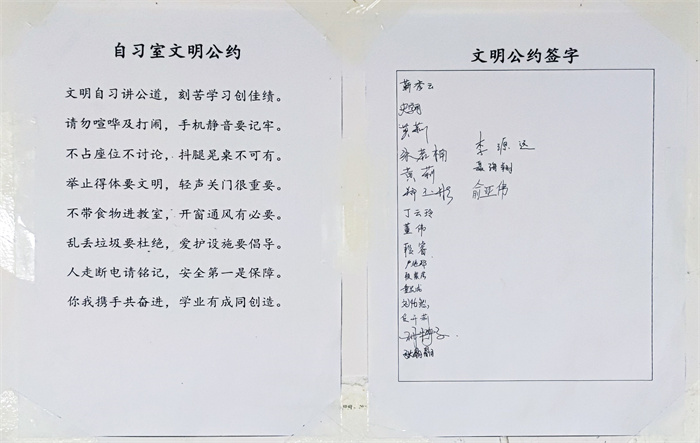 自习室文明公约
文明自习讲公道，刻苦学习创佳绩。
请勿喧哗及打闹，手机静音要记牢。
不占座位不讨论，抖腿晃桌不可有。
举止得体要文明，轻声关门很重要。
不带食物进教室，开窗通风有必要。
乱丢垃圾要杜绝，爱护设施要倡导。
人走断电请铭记，安全第一是保障。
你我携手共奋进，学业有成同创造。
文明公约签字
黄莉
李源达
黄莉
俞亚伟
丁云玲
董伟